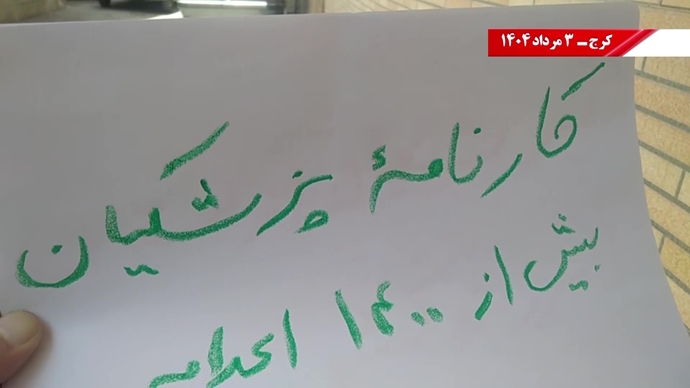 کرج ـ ۳ مرداد ۱۴۰۴
کارنامهٔ پزشکیان
بیش از ۱۴۰۰ اعدام